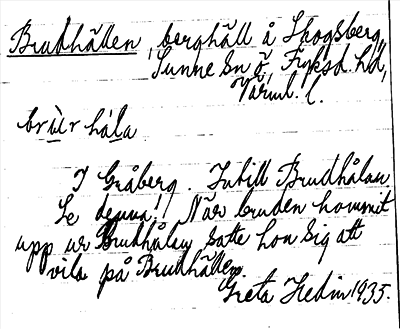 Brudhällen, berghäll å Skogsberg,
Sunne sn, Fryksd. hd,
Värml. l.
brùr hála
I Gråberg. Intill Brudhålan
Se denna! När bruden kommit
upp ur Brudhålan satte hon sig att
vila på Brudhällen.
Greta Hedin 1935.